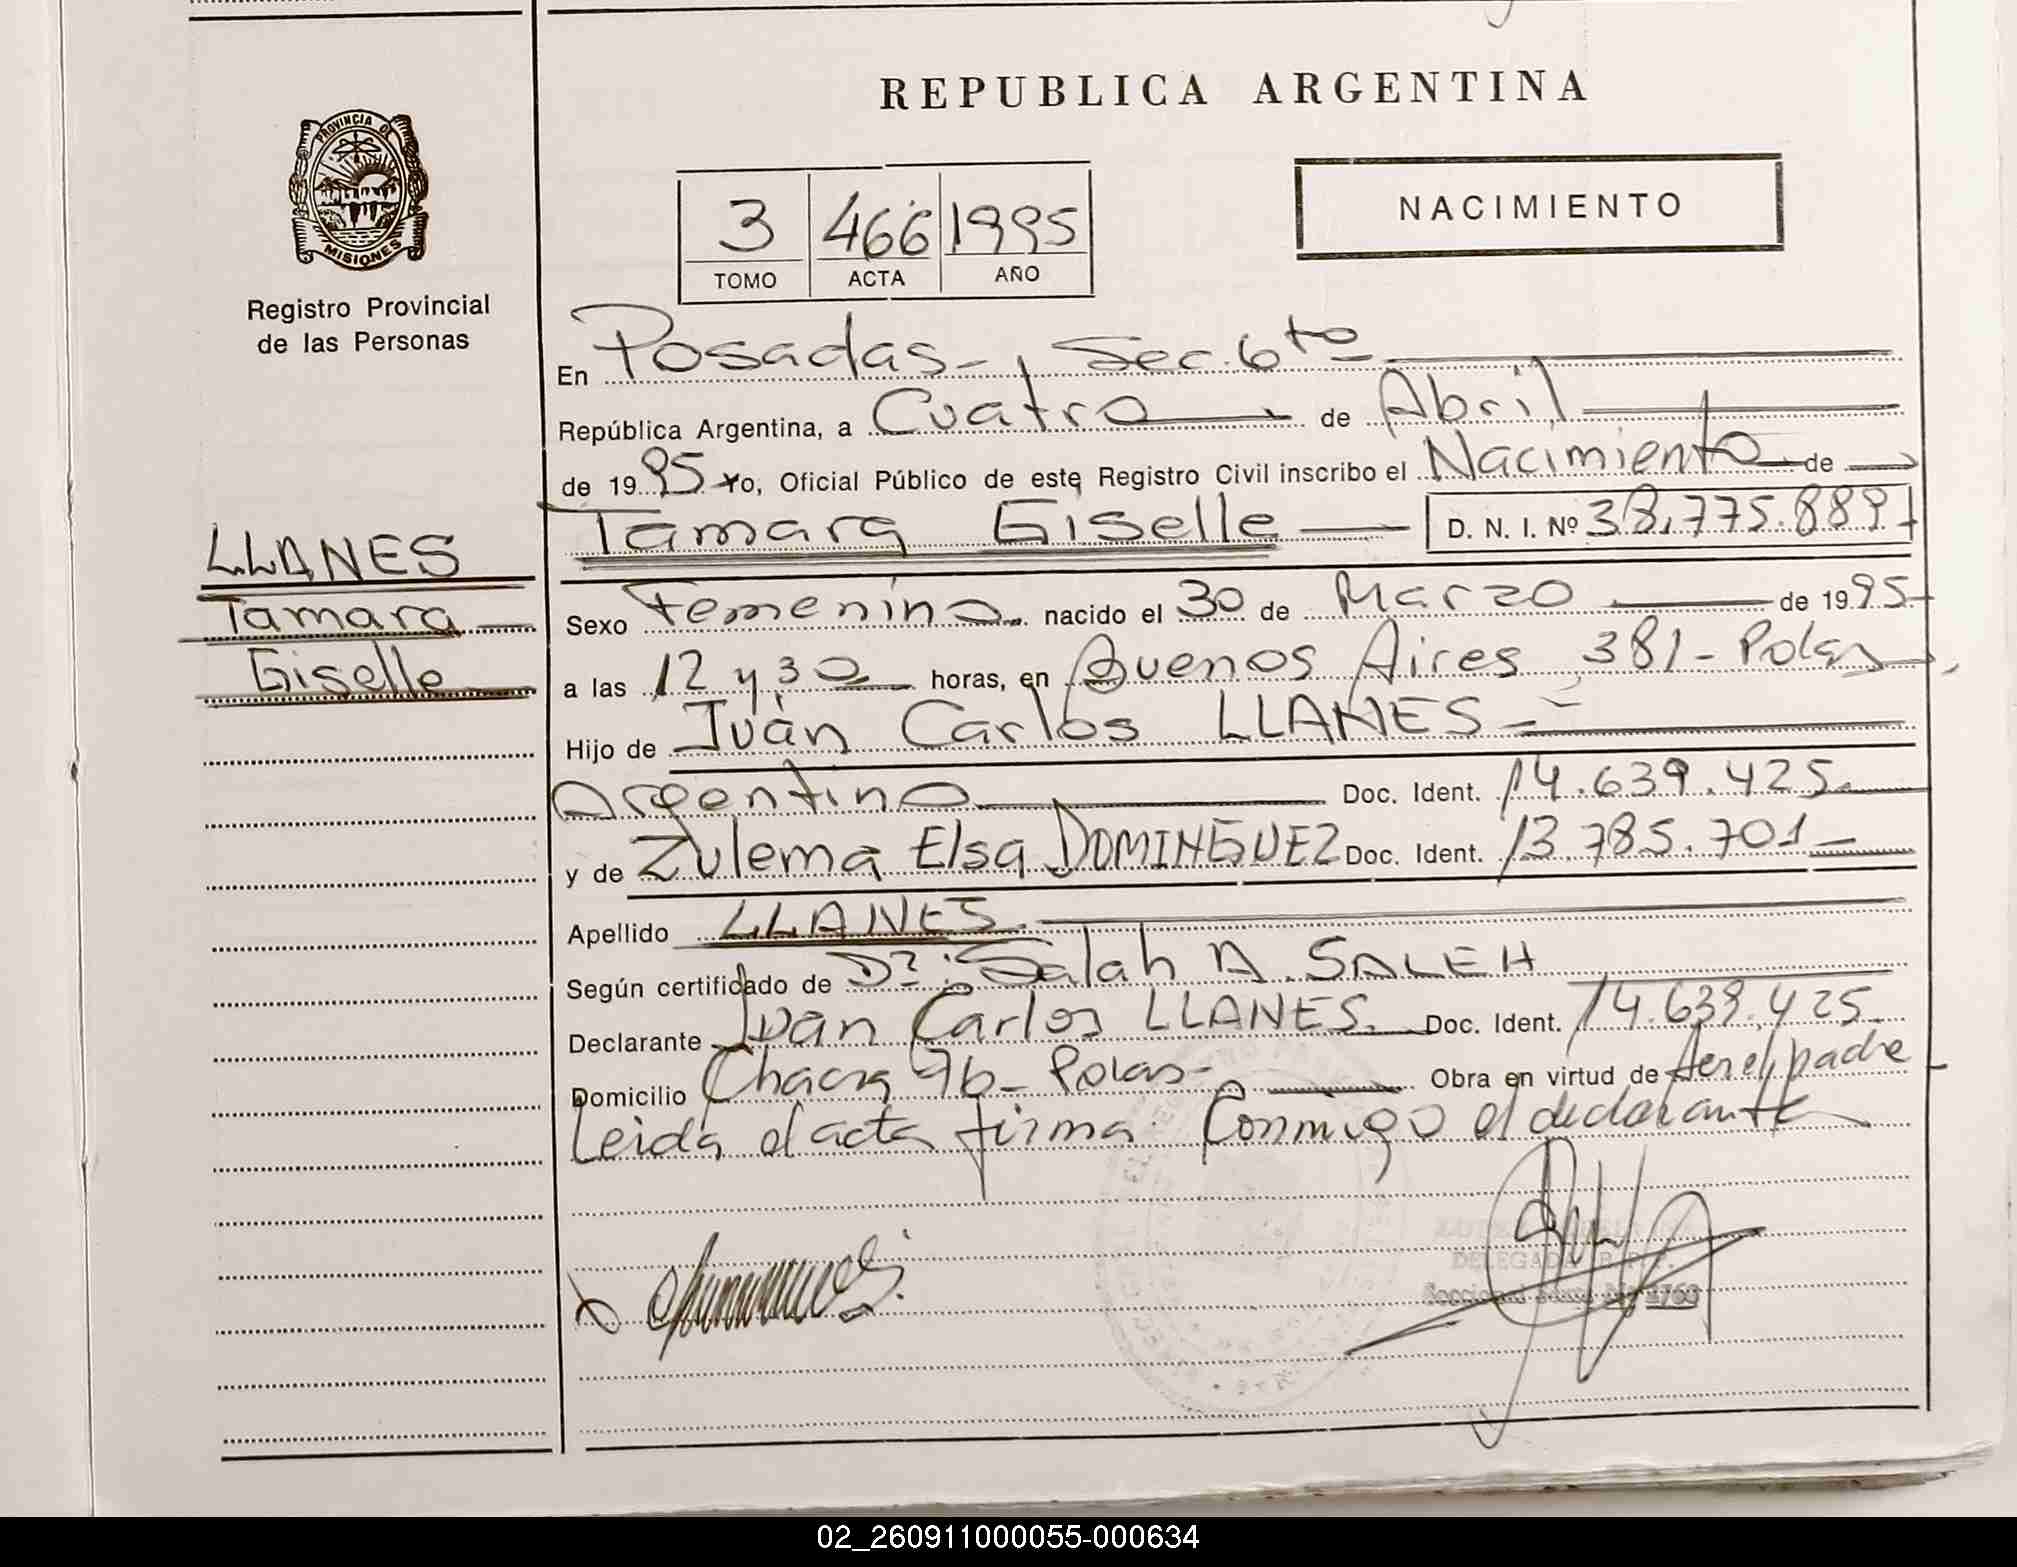 REPUBLICA ARGENTINA
PROVINCIA DE
MISIONES
Registro Provincial
de las Personas
3 466 1995
TOMO ACTA AÑO
NACIMIENTO
En Posadas-, Sec. 6to
República Argentina, a Cuatro de Abril
de 1995 Yo, Oficial Público de este Registro Civil inscribo el Nacimiento de
LLANES
Tamara
Giselle
Tamara Giselle D. N. I. Nº 38.775.889
Sexo Femenino nacido el 30 de Marzo de 1995
a las 12 y 30 horas, en Buenos Aires 381- Pdas
Hijo de Iván Carlos LLANES
Argentino Doc. Ident. 14.639.425
y de Zulema Elsa DOMINGUEZ Doc. Ident. 13.785.701
Apellido LLANES
Según certificado de Dr. Salah A. SALEH
Declarante Ivan Carlos LLANES. Doc. Ident. 14.639.425
Domicilio Chacra 96- Pdas- Obra en virtud de ser el padre
Leida el acta firma Conmigo el declarante
DELEGADA
02_260911000055-000634